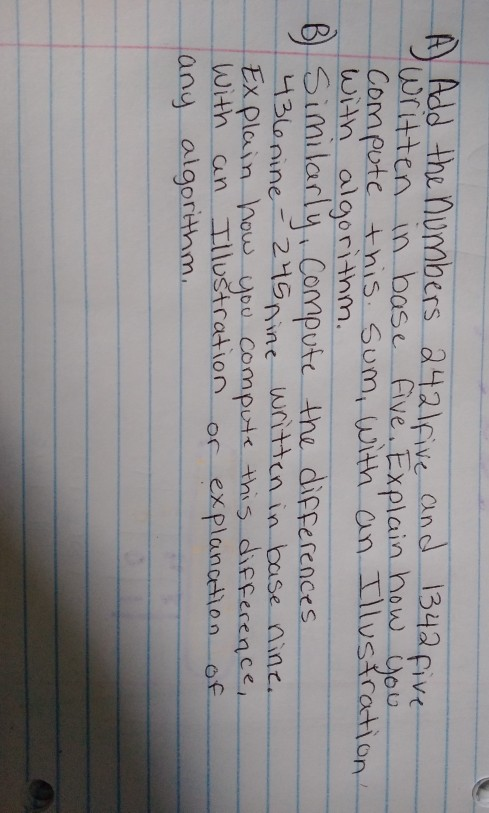 A) Add the numbers 2421five and 1342five
written in base five. Explain how you
Compute this sum, with an Illustration,
with algorithm.
B) Similarly, Compute the differences
436nine - 245nine written in base nine.
Explain how you compute this difference,
with an Illustration or explanation of
any algorithm.